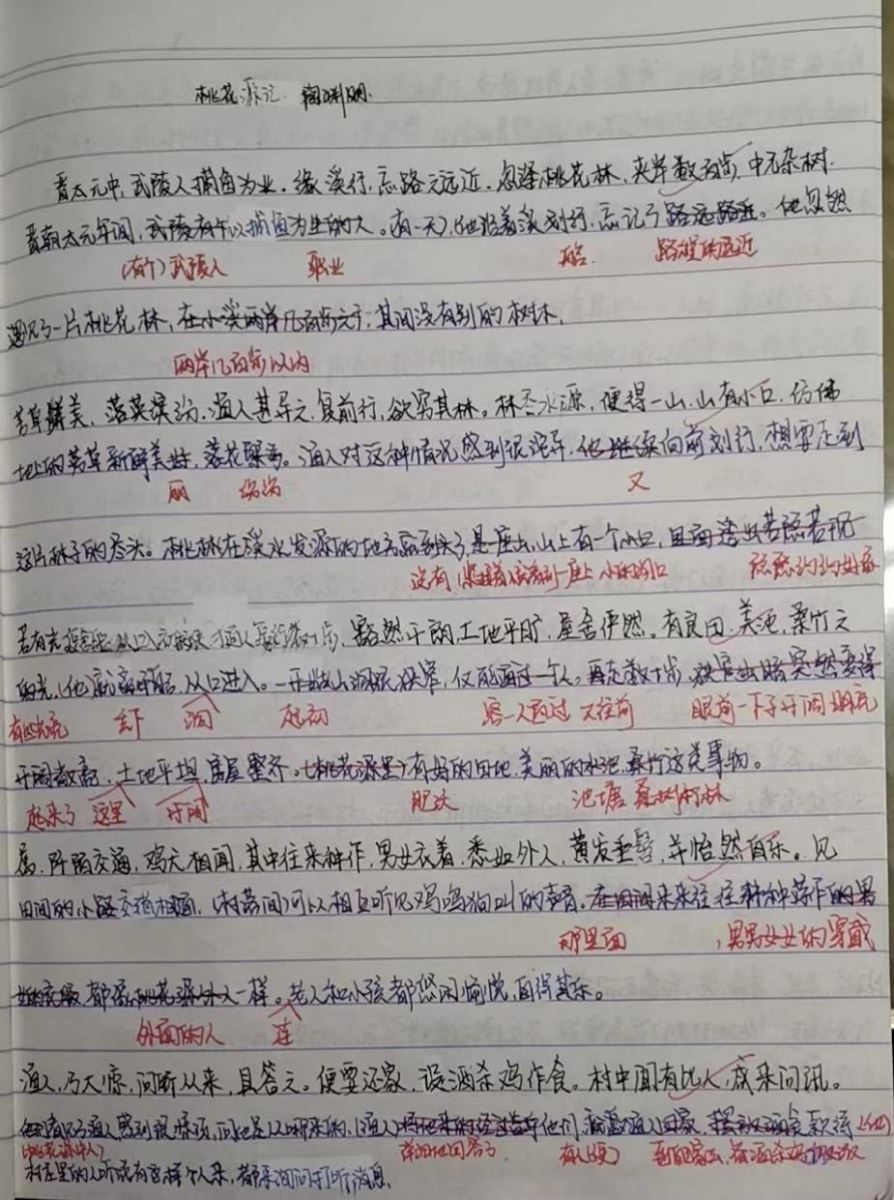 桃花源记 陶渊明
晋太元中,武陵人捕鱼为业。缘溪行,忘路之远近。忽逢桃花林,夹岸数百步,中无杂树.
晋朝太元年间,武陵有个以捕鱼为生的人。(有一天)(他沿着溪划行,忘记了路远路近。他忽然
(有个)武陵人 职业 路程的远近
遇见了一片桃花林,在小溪两岸几百步之间,其间没有别的树木,
两岸几百步以内
芳草鲜美,落英缤纷.渔人甚异之,复前行,欲穷其林。林尽水源,便得一山,山有小口,仿佛
地上的芳草新鲜美好,落花飘。渔人对这种情况感到很诧异,他继续向前划行,想要走到
丽 缤纷 又
这片林子的尽头。桃林在溪水发源的地方就到头了,是座山,山上有一个小口,里面
小的洞口 隐隐约约好像
若有光 豁然开朗.土地平旷,屋舍俨然。有良田、美池,桑竹之
的光,(他)就离开船,从口进入。一开始山洞很狭窄,仅能通过一个人。再走数十步 突然变得
有些光亮 舍下 洞 起初 容一人通过 又往前 眼前一下子开阔明亮
开阔敞亮,土地平坦,房屋整齐。(桃花源里)有好的田地、美丽的水池、桑竹这类事物。
起来了 这里 开阔 肥沃 池塘 桑树竹林
属,阡陌交通,鸡犬相闻,其中往来种作,男女衣着,悉如外人,黄发垂髫,并怡然自乐。见
田间的小路交错相通,(村落间)可以相互听见鸡鸣狗叫的声音。在田间来来往往耕种劳作的男
那里面 ,男男女女的穿戴
都像桃花源外人一样。老人和小孩都悠闲愉悦,自得其乐。
外面的人
渔人,乃大惊,问所从来,具答之。便要还家,设酒杀鸡作食。村中闻有此人,咸来问讯。
他们看见了渔人感到很惊讶,问他是从哪来的,(渔人) 他们 邀请渔人回家,
(桃花源中人) 详细地回答了 有人(便)
村庄里的人听说有这样个人来,都来询问打听消息.